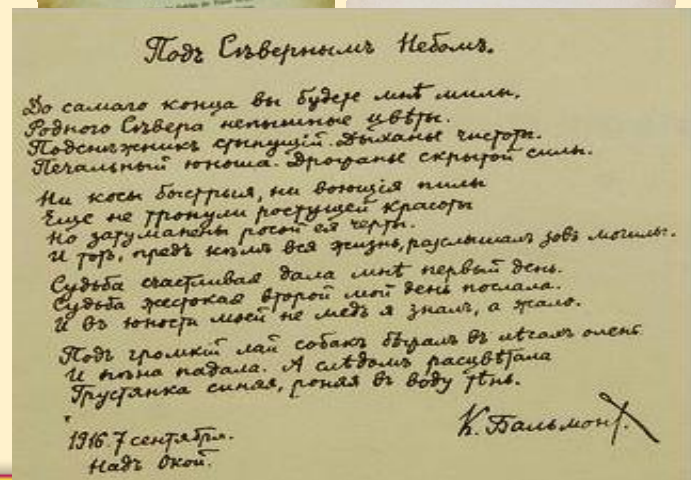 Подъ Сѣвернымъ Небомъ.
До самаго конца вы будете мнѣ милы,
Родного Сѣвера непышные цвѣты.
Подснѣжникъ стынущій. Дыханье чистоты.
Печальный юноша. Дрожанье скрытой силы.
Ни косы быстрыя, ни воющія пилы
Еще не тронули ростущей красоты
Но затуманены росой ея черты.
И тотъ, предъ кѣмъ вся жизнь, разслышалъ зовъ могилы.
Судьба счастливая дала мнѣ первый день.
Судьба жестокая второй мой день послала.
И въ юности моей не медъ я зналъ, а жало.
Подъ громкій лай собакъ бѣжалъ въ лѣсахъ олень
И пѣна падала. А слѣдомъ расцвѣтала
Грустянка синяя, роняя въ воду тѣнь.
К. Бальмонт.
1916. 7 сентября.
Надъ Окой.